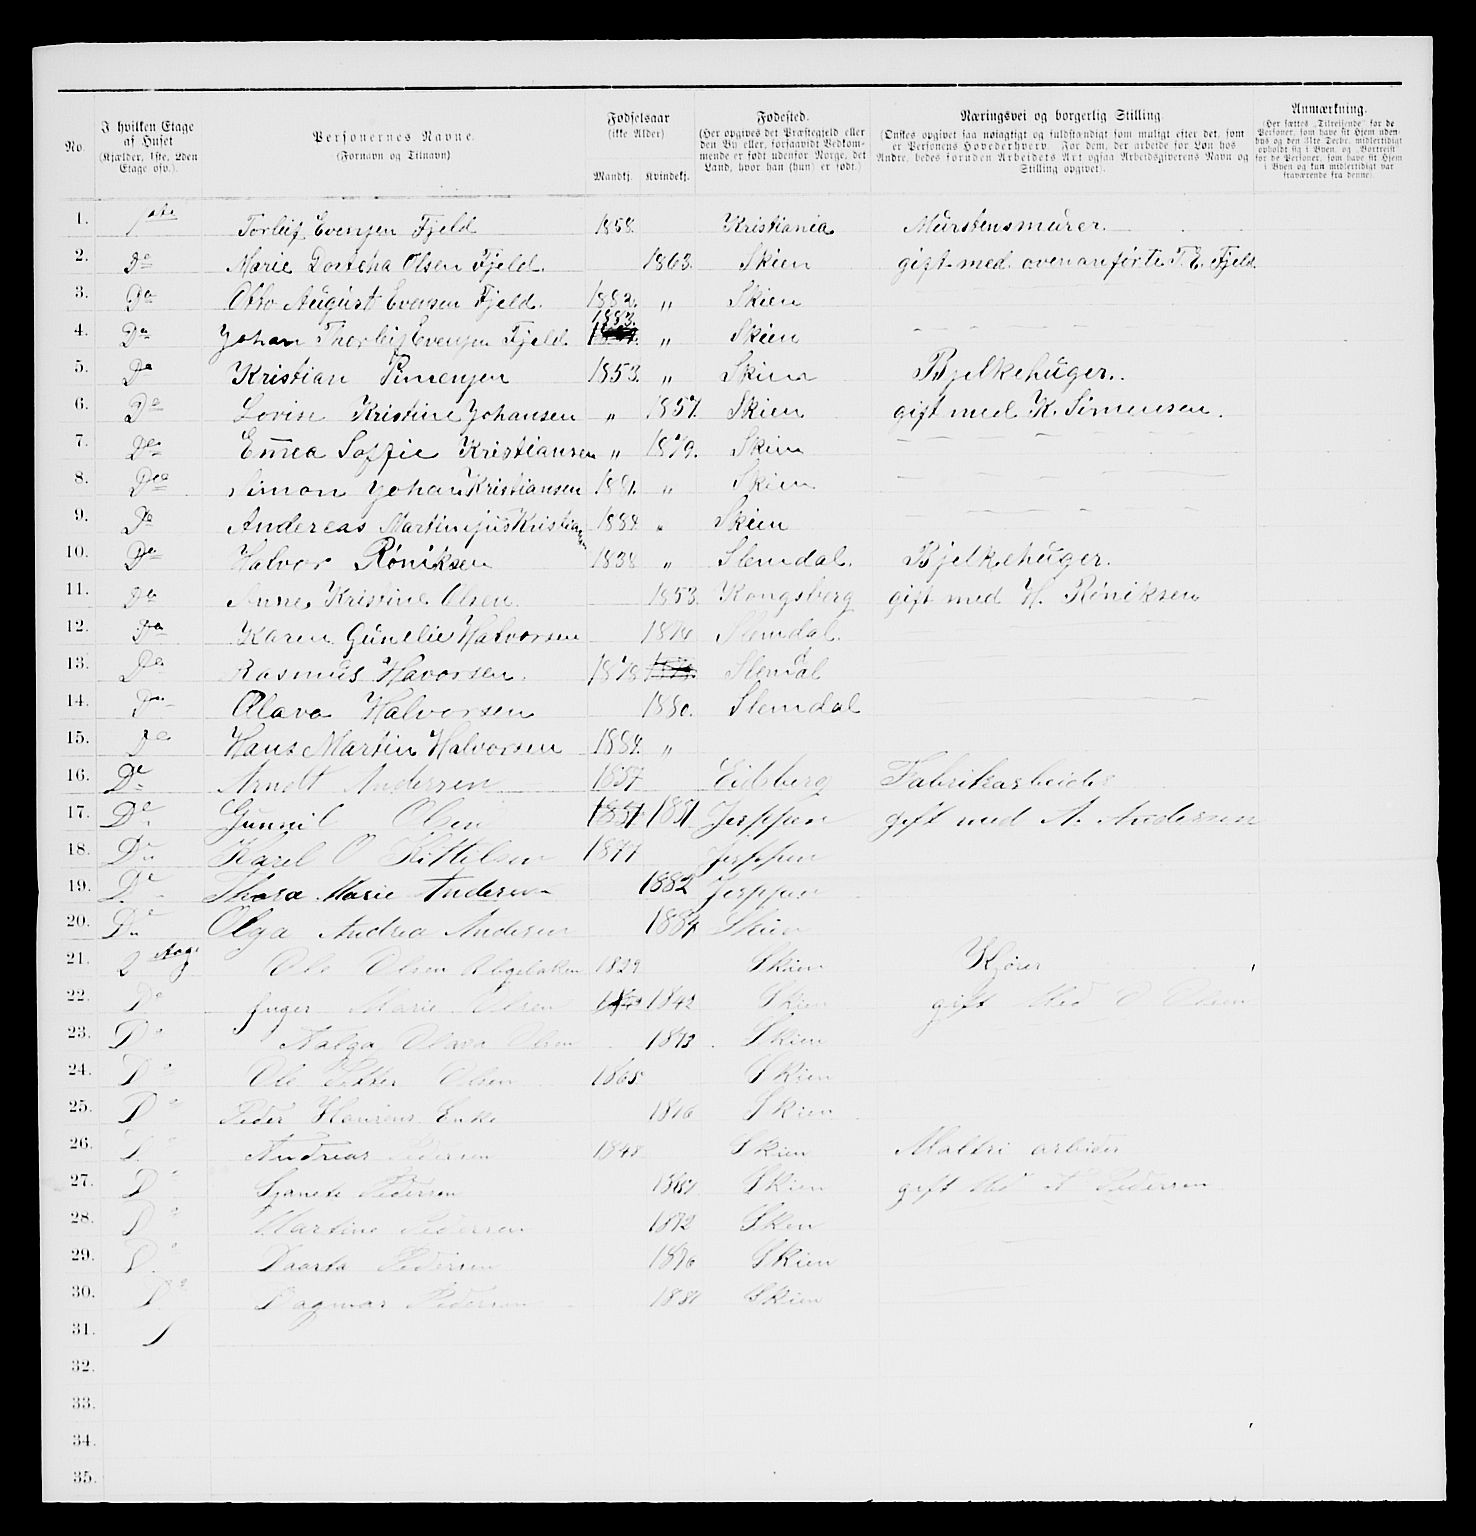 No. | I hvilken Etage af Huset (Kjælder, 1ste, 2den Etage osv.). | Personernes Navne. (Fornavn og Tilnavn) | Fødselsaar (ikke Alder) Mandkj. Kvindekj. | Fødested. (Her opgives det Præstegjeld eller den By eller, forsaavidt Vedkommende er født udenfor Norge, det Land, hvor han (hun) er født.) | Næringsvei og borgerlig Stilling. (Ønskes opgivet saa nøiagtigt og fuldstændigt som muligt efter det, som er Personens Hovederhverv. For dem, der arbeide for Løn hos Andre, bedes foruden Arbeidets Art ogsaa Arbeidsgiverens Navn og Stilling opgivet). | Anmærkning. (Her sættes „Tilreisende" for de Personer, som have sit Hjem udenbys og den 31te Decbr. midlertidigt opholdt sig i Byen, og „Bortreist" for de Personer, som have sit Hjem i Byen og kun midlertidigt var fraværende fra denne).
1. 1ste Torleif Evensen Fjeld 1858. Kristiania Murstensmurer.
2. Do Marie Dorthea Olsen Fjeld. 1863. Skien gift med ovenanførte T. E. Fjeld
3. Do Otto August Evensen Fjeld. 1882. „ Skien
4. Do Johan Thorleif Evensen Fjeld. 1883. „ Skien
5. Do Kristian Simensen 1853. „ Skien Bjelkehuger.
6. Do Lovise Kristine Johansen „ 1857. Skien gift med K. Simensen.
7. Do Emea Soffie Kristiansen „ 1879. Skien
8. Do Simon Johan Kristiansen 1881. „ Skien
9. Do Andereas Martinjus Kristiansen 1884. „ Skien
10. Do Halvor Røniksen 1838 „ Slemdal. Bjelkehuger.
11. Do Anne Kristine Olsen. 1853. Kongsberg gift med H. Røniksen
12. Do Karen Gunelie Halvorsen 1876 Slemdal.
13. Do Rasmus Havorsen. 1878 Slemdal
14. Do Olava Halvorsen 1880. Slemdal
15. Do Hans Martin Halvorsen 1884. „
16. Do Arndt Andersen 1857 Eidsberg Fabrikarbeider
17. Do Gunnil Olsen 1851 Jerppen gift med A. Andersen
18. Do Karel O Kittilsen 1877 Jerppen
19. Do Thora Marie Andersen 1882 Jerppen
20. Do Olga Andrea Andersen 1884 Skien
21. 2 Ole Olsen 1829 Skien Kjører
22. Do Inger Marie Olsen 1842 Skien gift Med O Olsen
23. Do Olava Olsen 1873 Skien
24. Do Ole Petter Olsen 1865 Skien
25. Do Peder Enke 1816 Skien
26. Do Andreas Pedersen 1848 Skien Maltri arbeider
27. Do Pedersen Skien gift Med A Pedersen
28. Do Martine Pedersen 1872 Skien
29. Do Pedersen 1876 Skien
30. Do Dagmar Pedersen 1881 Skien
31.
32.
33.
34.
35.